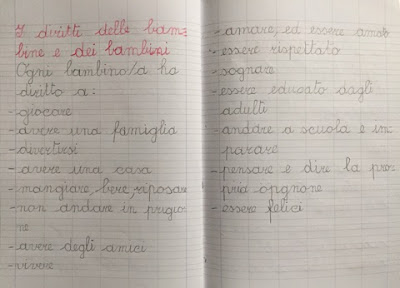 I diritti delle bam=
bine e dei bambini
Ogni bambino/a ha
diritto a:
-giocare
-avere una famiglia
-divertirsi
-avere una casa
-mangiare, bere, riposare
-non andare in prigio=
ne
-avere degli amici
-vivere
-amare, ed essere amato
-essere rispettato
-sognare
-essere educato dagli
adulti
-andare a scuola e im
parare
-pensare e dire la pro=
pria opignone
-essere felici